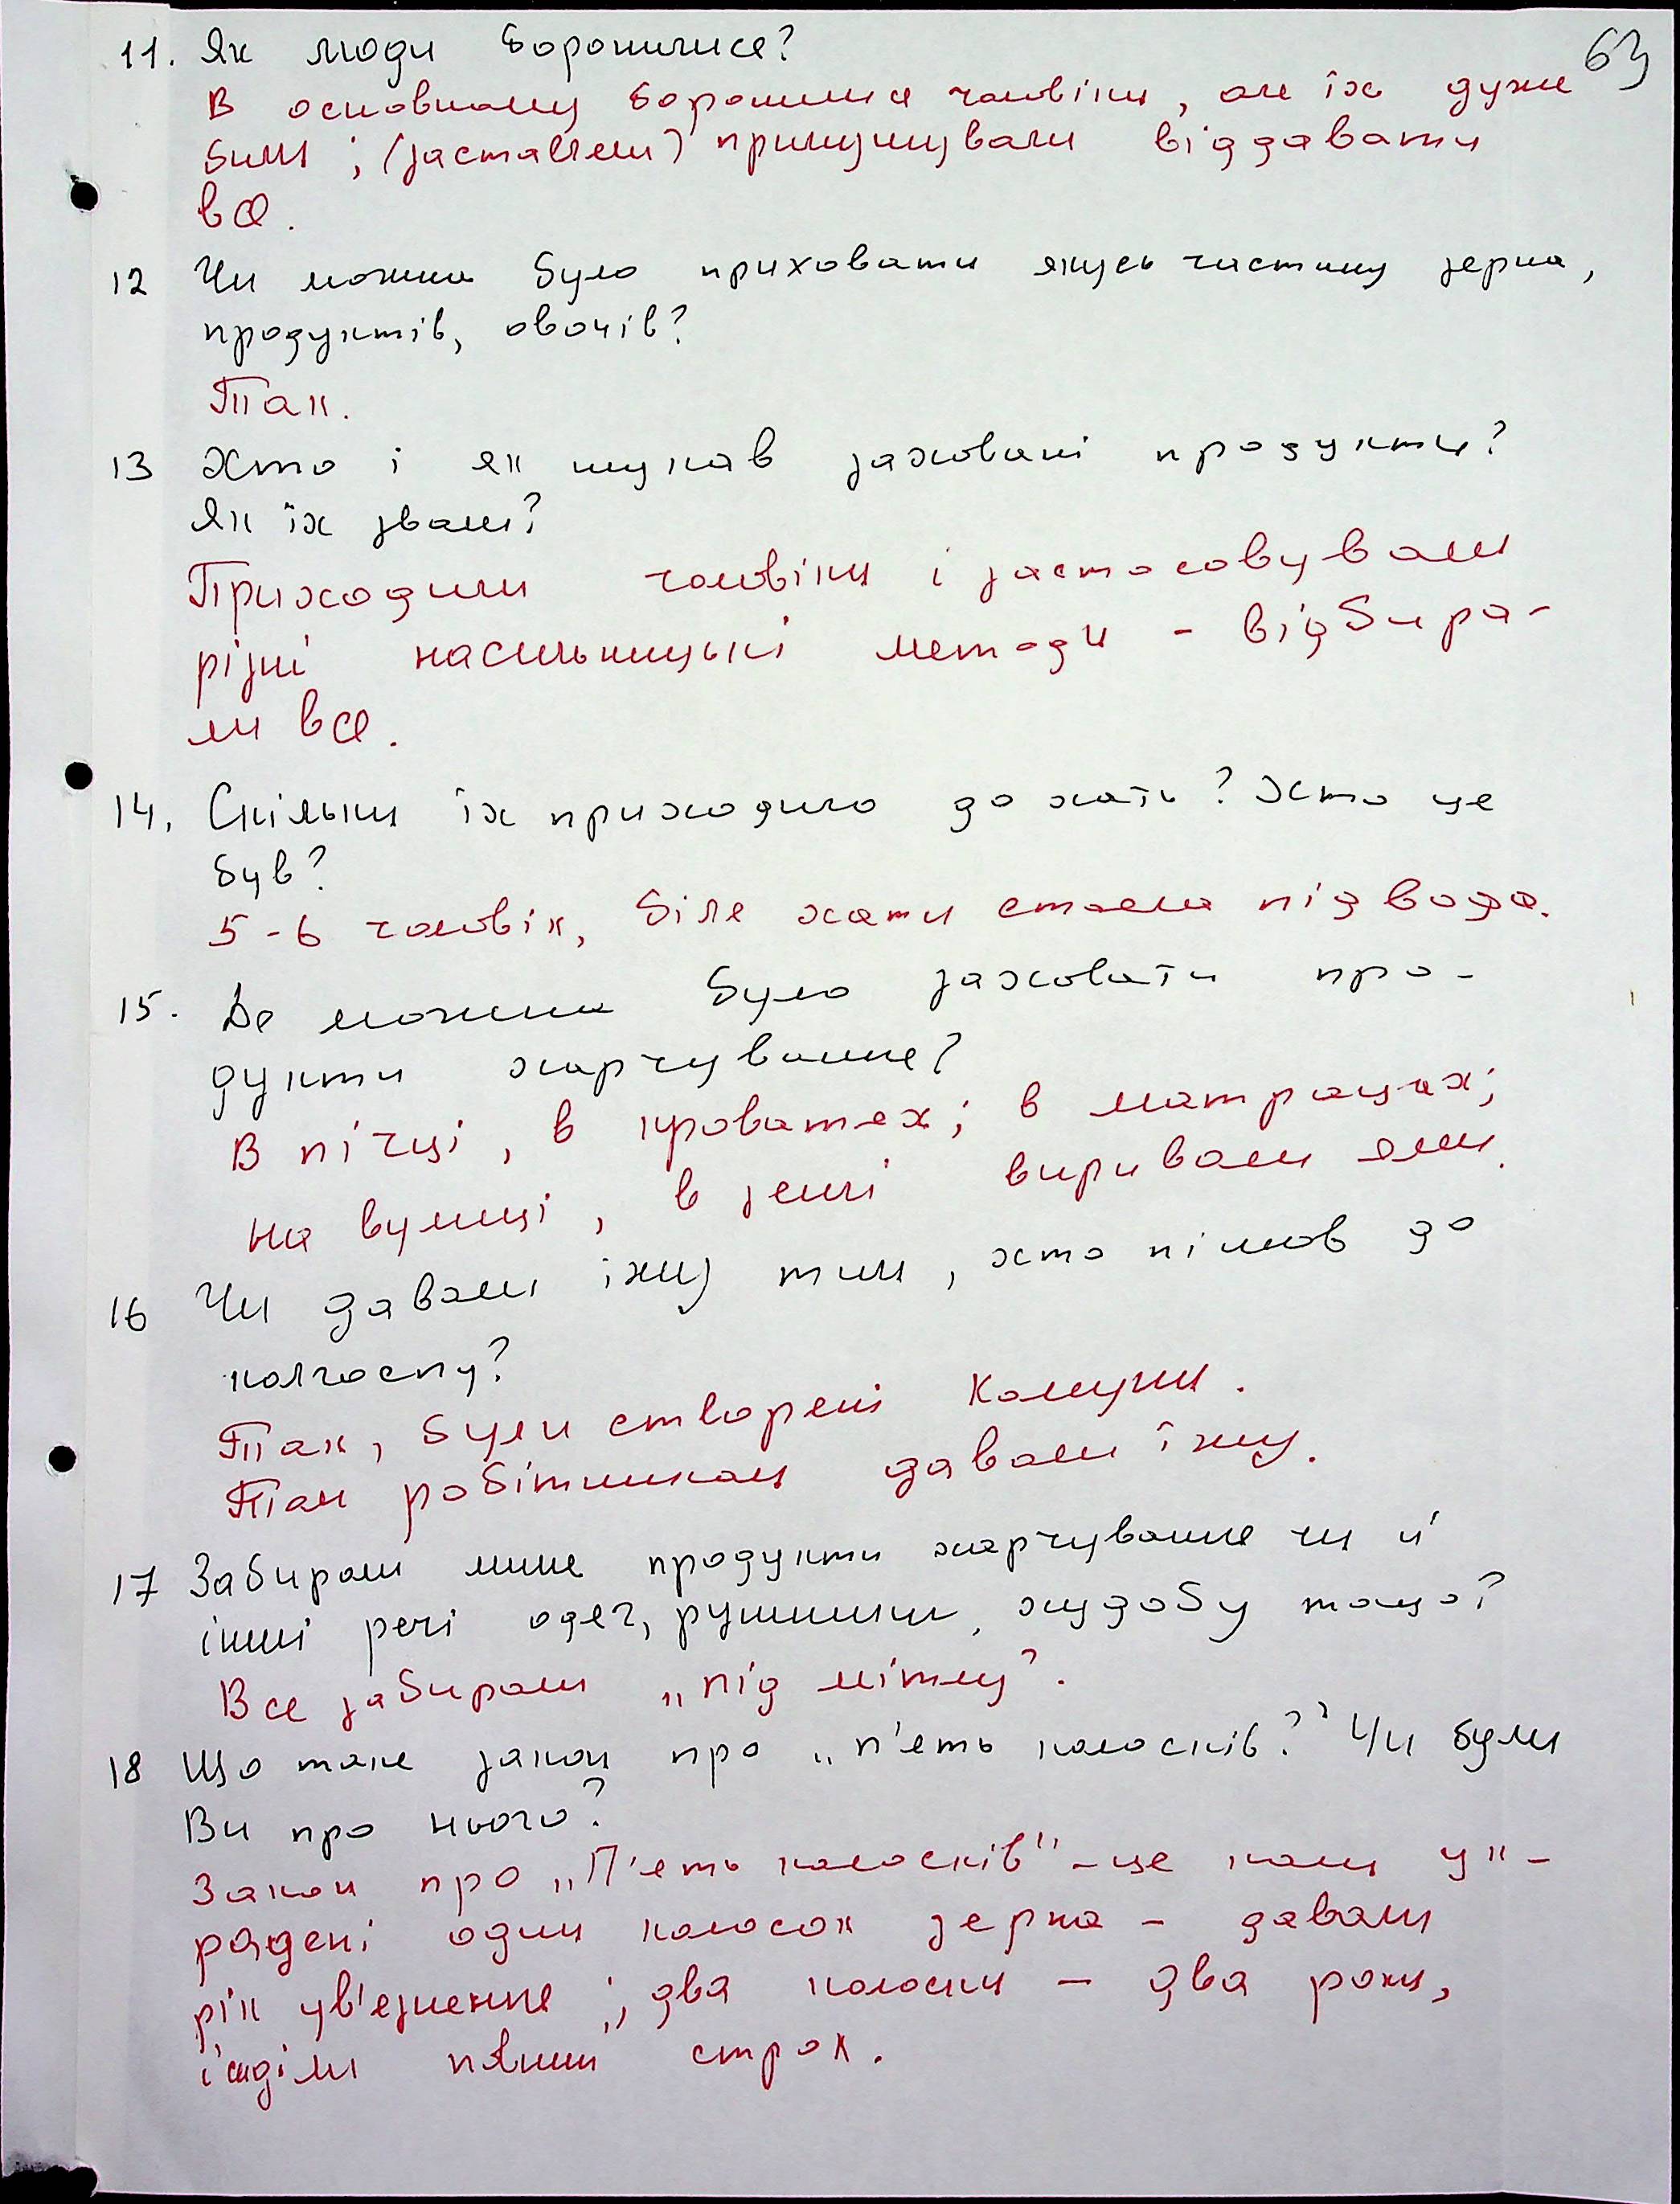 63
11. Як люди боронилися?
В основному боронилися чоловіки, але їх дуже
били; (заставляли) примушували віддавати
все.
12 Чи можна було приховати якусь частину зерна,
продуктів, овочів?
Так.
13 Хто і як шукав заховані продукти?
Як їх звали?
Приходили чоловіки і застосовували
різні насильницькі методи - відбира-
ли все.
14. Скільки їх приходило до хати? Хто це
був?
5-6 чоловік, біля хати стояла підвода.
15. Де можна було заховати про-
дукти харчування?
В пічці, в кроватях; в матрацах;
на вулиці, в землі виривали ями.
16 Чи давали їжу тим, хто пішов до
колгоспу?
Так, були створені комуни.
Там робітникам давали їжу.
17 Забирали лише продукти харчування чи й
інші речі одяг, рушники, худобу тощо?
Все забирали „під мітлу".
18 Що таке закон про „п'ять колосків?" Чи були
Ви про нього?
Закон про „П'ять колосків" - це коли ук-
радені один колосок зерна - давали
рік ув'язнення; два колоски - два роки,
строк.